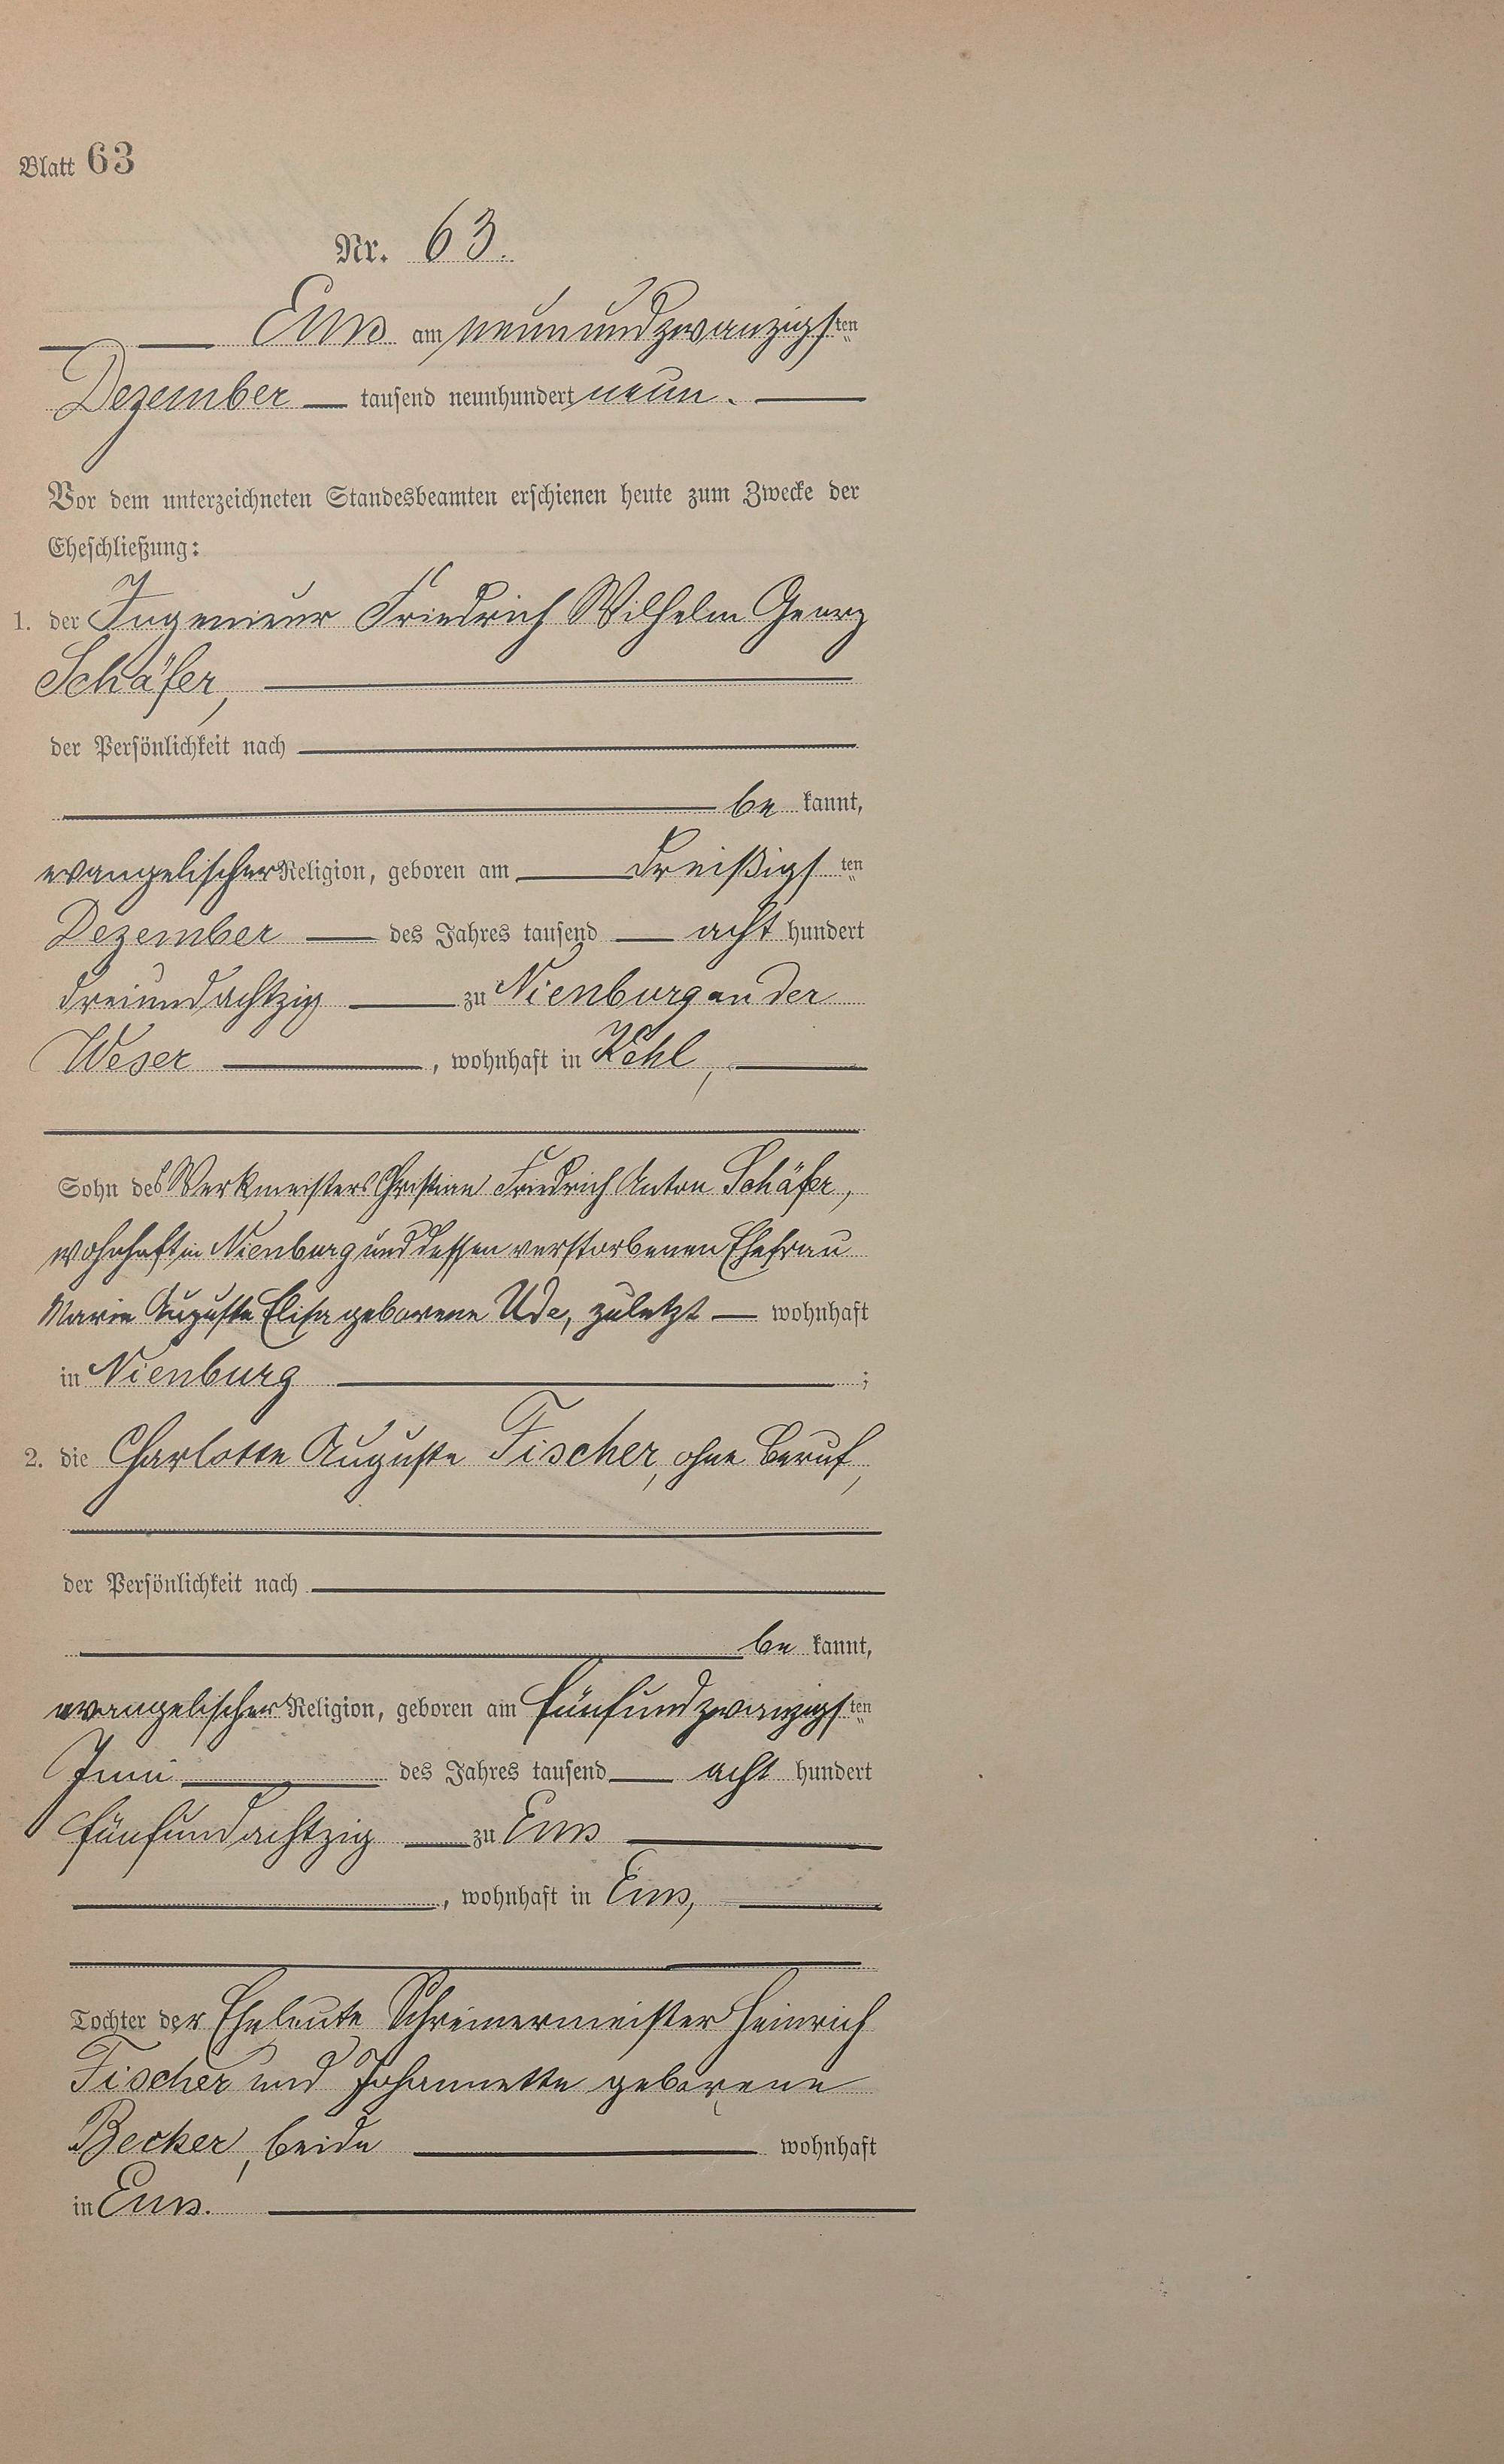 Blatt 63
Nr. 63.
Ems am neunundzwanzigsten
Dezember tausend neunhundert neun.
Vor dem unterzeichneten Standesbeamten erschienen heute zum Zwecke der
Eheschließung:
1. der Ingenieur Friedrich Wilhelm Georg
Schäfer,
der Persönlichkeit nach
be kannt,
evangelischer Religion, geboren am dreißigsten
Dezember des Jahres tausend acht hundert
dreiundachtzig zu Nienburg an der
Weser, wohnhaft in Kehl,
Sohn des Werkmeisters Christian Friedrich Anton Schäfer,
wohnhaft in Nienburg und dessen verstorbenen Ehefrau
Marie Auguste Elisa geborene Ude, zuletzt wohnhaft
in Nienburg ;
2. die Charlotte Auguste Fischer, ohne Beruf,
der Persönlichkeit nach
be kannt,
evangelischer Religion, geboren am fünfundzwanzigsten
Juni des Jahres tausend acht hundert
fünfundachtzig zu Ems
, wohnhaft in Ems,
Tochter der Eheleute Schreinermeister Heinrich
Fischer und Johannette geborene
Becker, beide wohnhaft
in Ems.